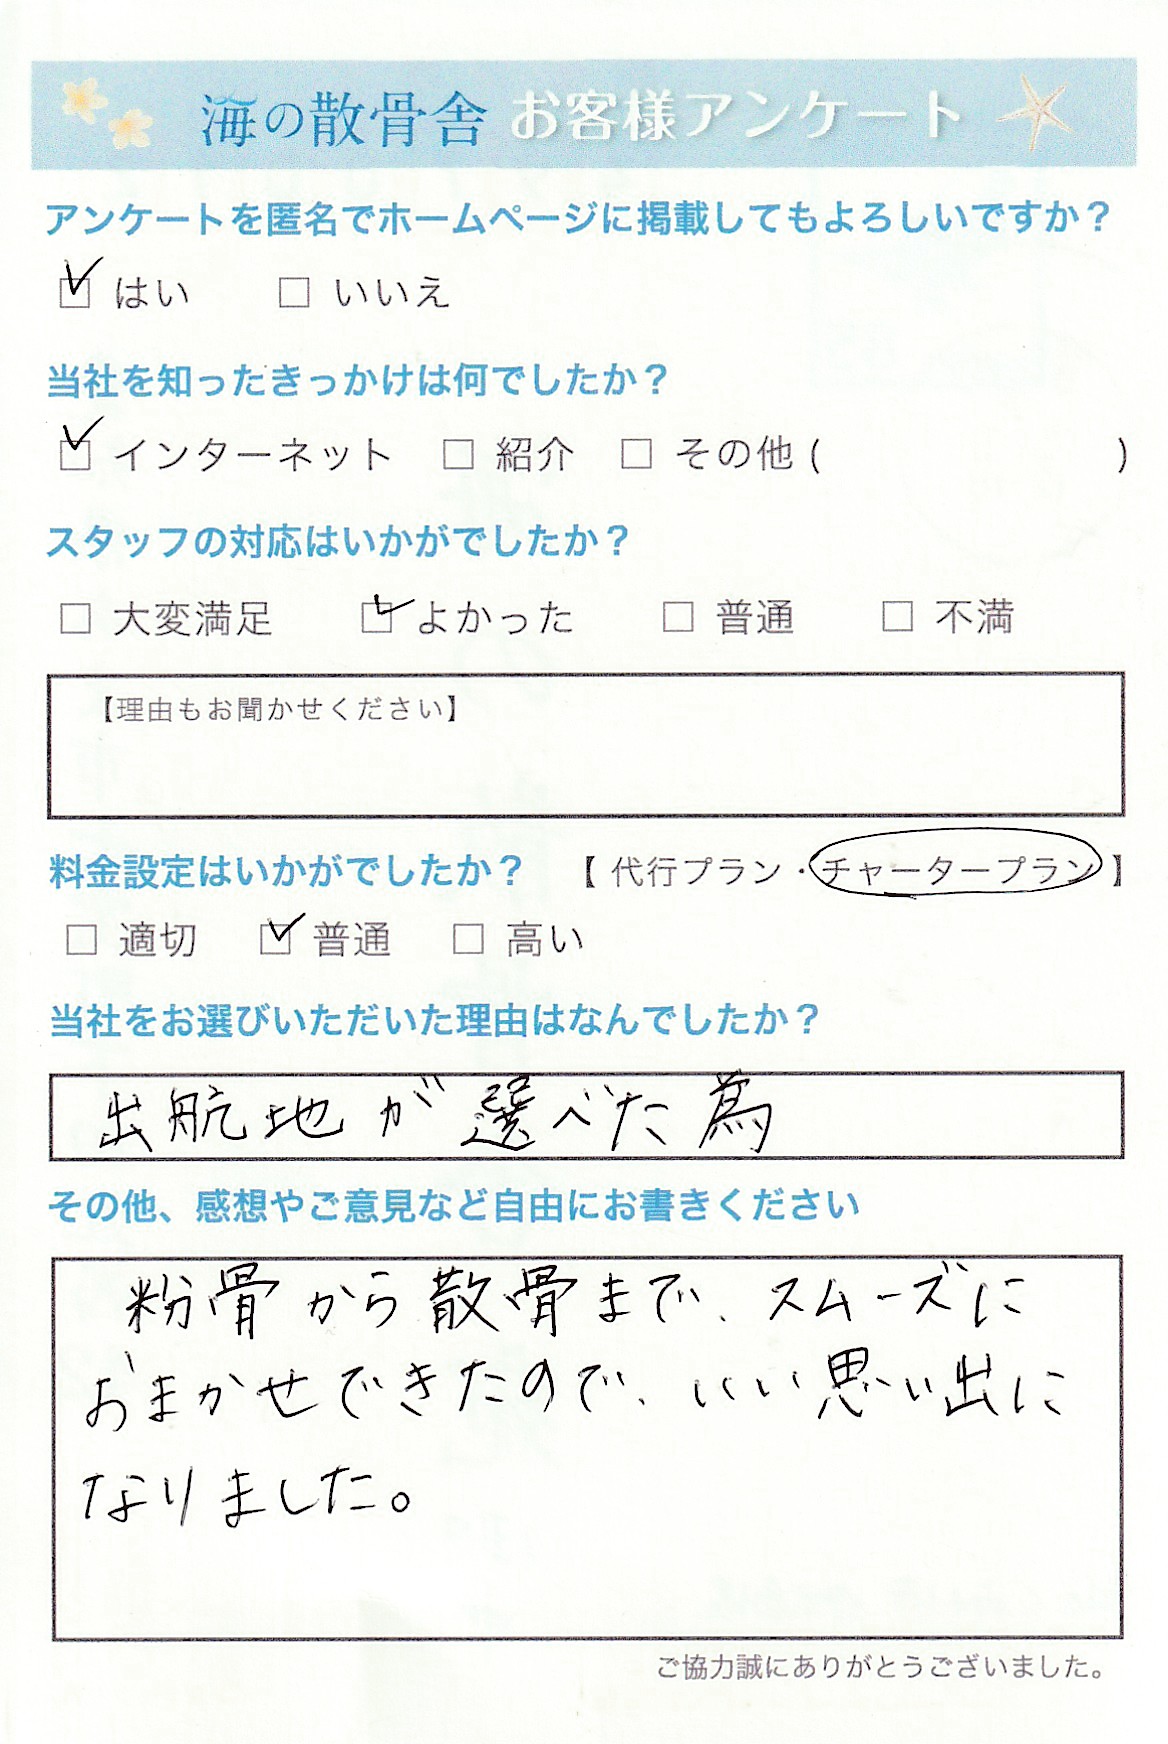 海の散骨舎 お客様アンケート
アンケートを匿名でホームページに掲載してもよろしいですか？
☑ はい □ いいえ
当社を知ったきっかけは何でしたか？
☑ インターネット □ 紹介 □ その他 ( )
スタッフの対応はいかがでしたか？
□ 大変満足 ☑ よかった □ 普通 □ 不満
【理由もお聞かせください】
料金設定はいかがでしたか？ 【 代行プラン・チャータープラン 】
□ 適切 ☑ 普通 □ 高い
当社をお選びいただいた理由はなんでしたか？
出航地が選べた為
その他、感想やご意見など自由にお書きください
粉骨から散骨まで、スムーズに
おまかせできたので、いい思い出に
なりました。
ご協力誠にありがとうございました。